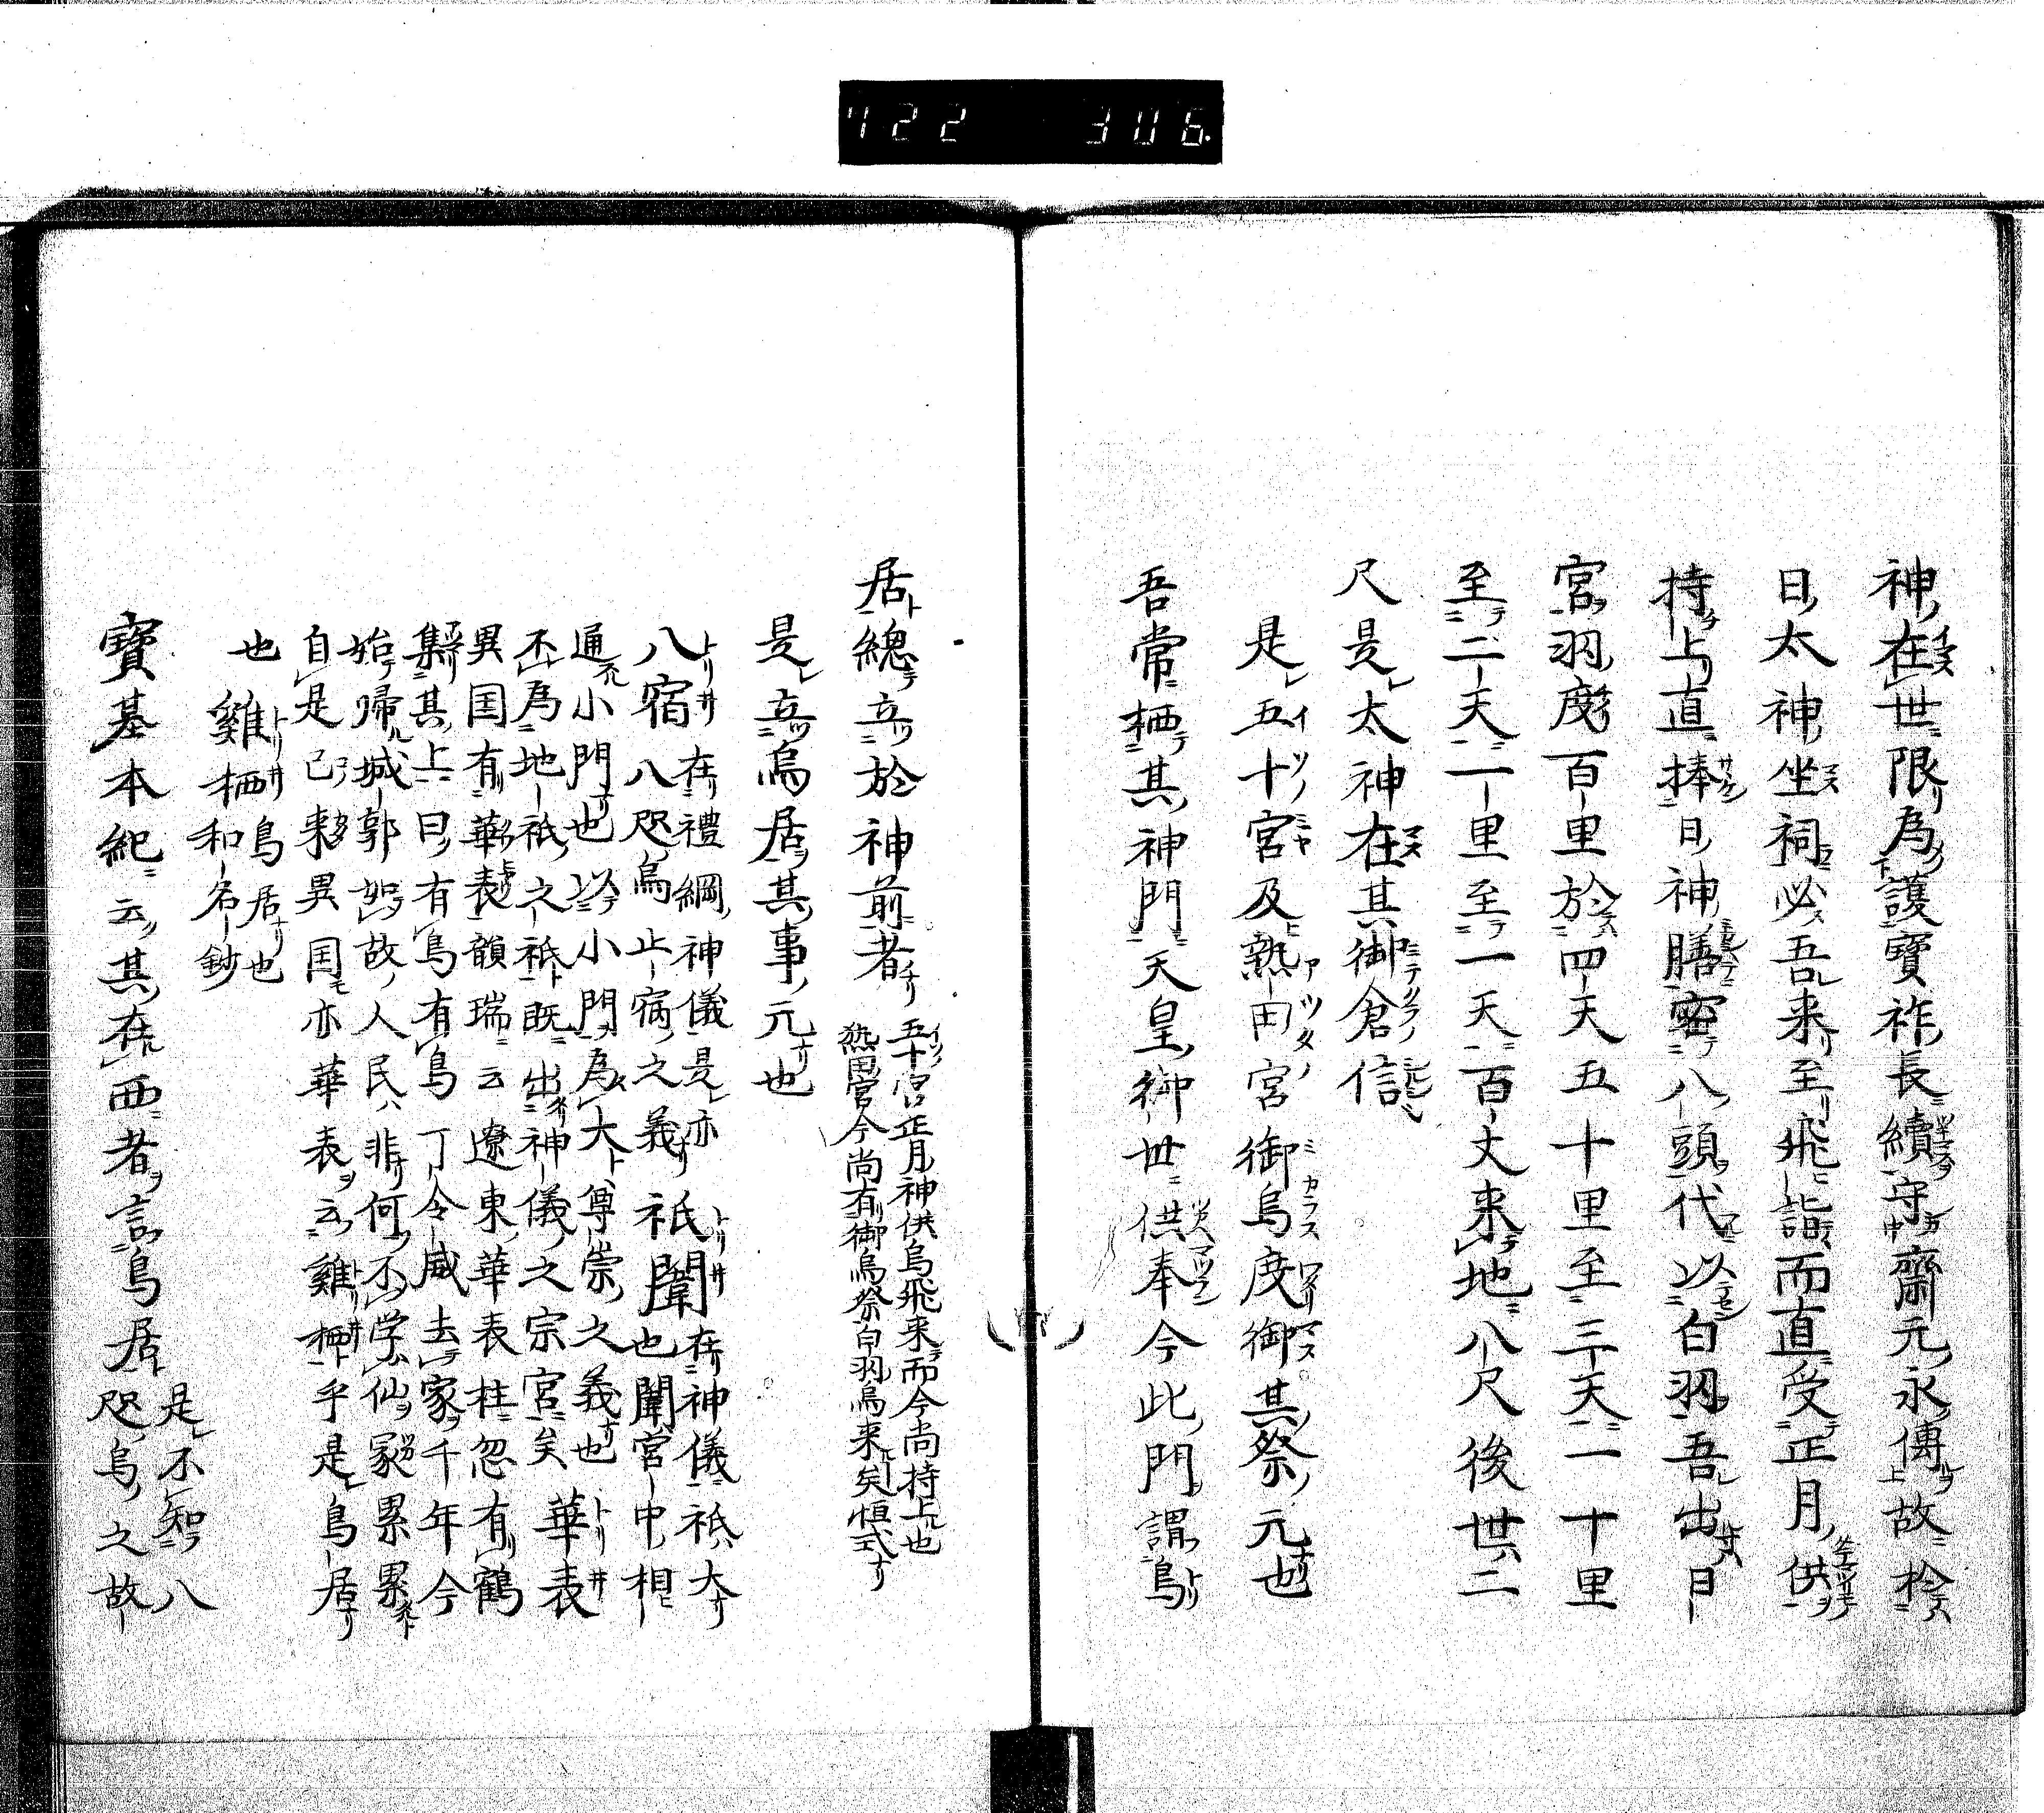 722 306.
神在世限為護寶祚長續守齋元永傳故於
日太神坐祠必吾来至飛詣而直受正月供
持上直捧日神膳密八頭代以白羽吾出日
宮羽度百里於四天五十里至三天一十里
至二天一里至一天百丈来地八尺後世二
尺是太神在其御倉信
是五十宮及熱田宮御烏度御其祭元也
吾常栖其神門天皇御世供奉今此門謂鳥
居總立於神前者
五十宮正月神供烏飛来而今尚持上也
熱田宮今尚有御烏祭白羽烏来矣恒式
是立烏居其事元也
八宿 在禮綱神儀是亦八咫烏止宿之義 祇闈 在神儀祇大
也闈宮中相通小門也以小門為大尊崇之義也
不為地祇之祇既出神儀之宗宮矣 華表
異国有華表韻瑞云遼東華表柱忽有鶴
集其上曰有鳥有鳥丁令威去家千年今
始帰城郭如故人民非何不学仙冢累累
自是已来異国亦華表云雞栖乎是鳥居
也 雞栖 和名鈔鳥居也
寶基本紀云其在西者言鳥居
是不知八
咫烏之故